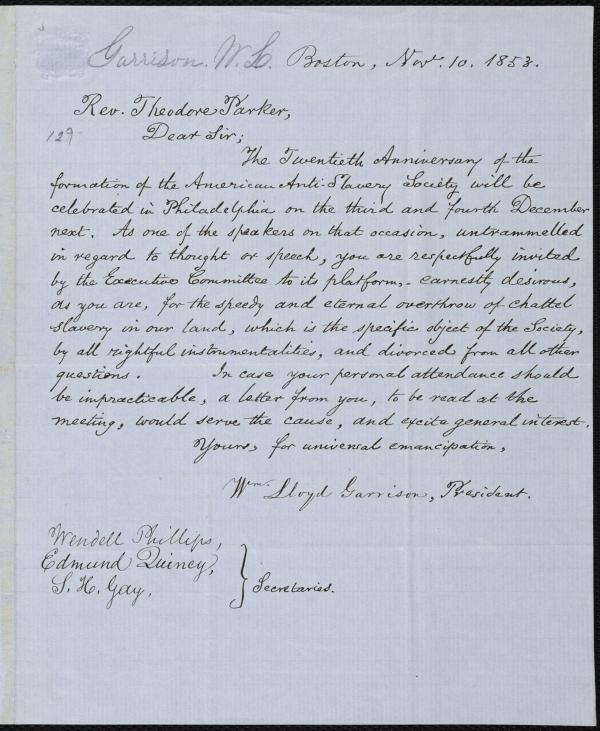 Garrison. W. L. Boston, Nov. 10. 1853.
Rev. Theodore Parker,
129
Dear Sir;
The Twentieth Anniversary of the
formation of the American Anti-Slavery Society will be
celebrated in Philadelphia on the third and fourth December
next. As one of the speakers on that occasion, untrammelled
in regard to thought or speech, you are respectfully invited
by the Executive Committee to its platform,- earnestly desirous,
as you are, for the speedy and eternal overthrow of chattel
slavery in our land, which is the specific object of the Society,
by all rightful instrumentalities, and divorced from all other
questions. In case your personal attendance should
be impracticable, a letter from you, to be read at the
meeting, would serve the cause, and excite general interest.
Yours, for universal emancipation,
Wm. Lloyd Garrison, President.
Wendell Phillips,
Edmund Quincy,
S. H. Gay.
Secretaries.